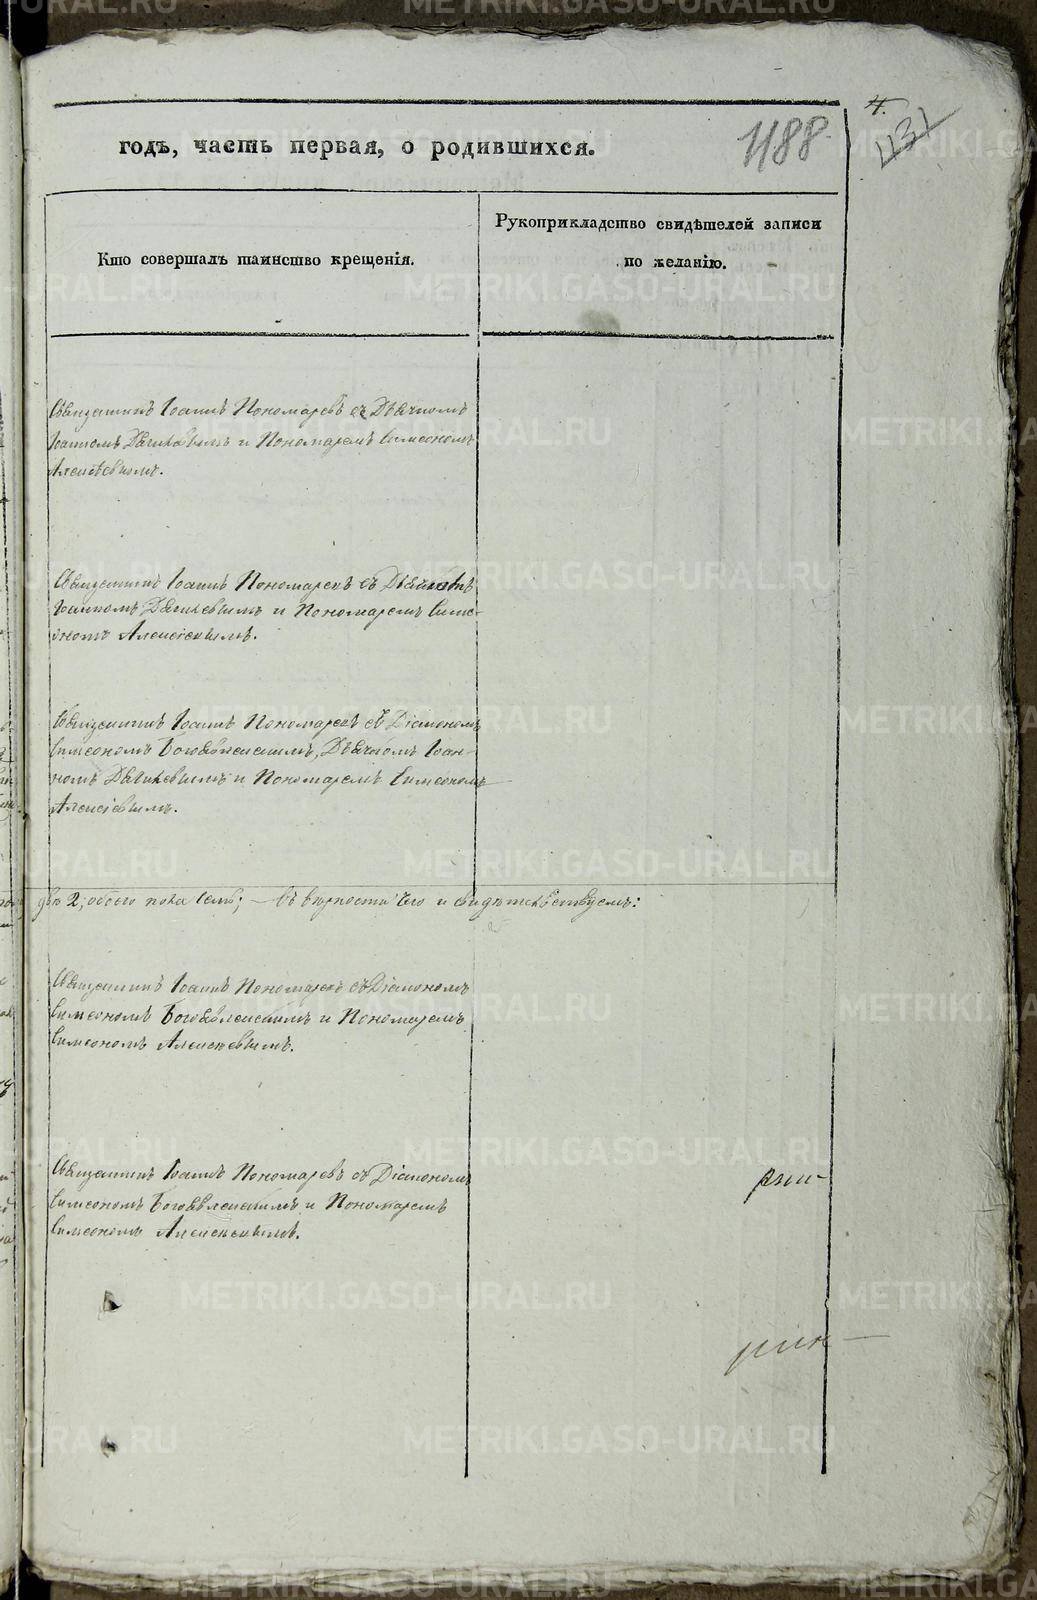 4.
годъ, часть первая, о родившихся.
1188
1131
Кто совершалъ таинство крещенія.
Рукоприкладство свидѣтелей записи
по желанію.
Священникъ Іоаннъ Пономаревъ съ Дьячкомъ
Іоанномъ Дягилевымъ и Пономаремъ Симеономъ
Алексѣевымъ.
Священникъ Іоаннъ Пономаревъ съ Дьячкомъ
Іоанномъ Дягилевымъ и Пономаремъ Симе-
ономъ Алексѣевымъ.
Священникъ Іоаннъ Пономаревъ съ Діакономъ
Симеономъ Богоявленскимъ, Дьячкомъ Іоан-
номъ Дягилевымъ и Пономаремъ Симеономъ
Алексѣевымъ.
2, обоего пола семь; — въ вѣрности чего и свидѣтельствуемъ:
Священникъ Іоаннъ Пономаревъ съ Діакономъ
Симеономъ Богоявленскимъ и Пономаремъ
Симеономъ Алексѣевымъ.
Священникъ Іоаннъ Пономаревъ съ Діакономъ
Симеономъ Богоявленскимъ и Пономаремъ
Симеономъ Алексѣевымъ.
METRIKI.GASO-URAL.RU